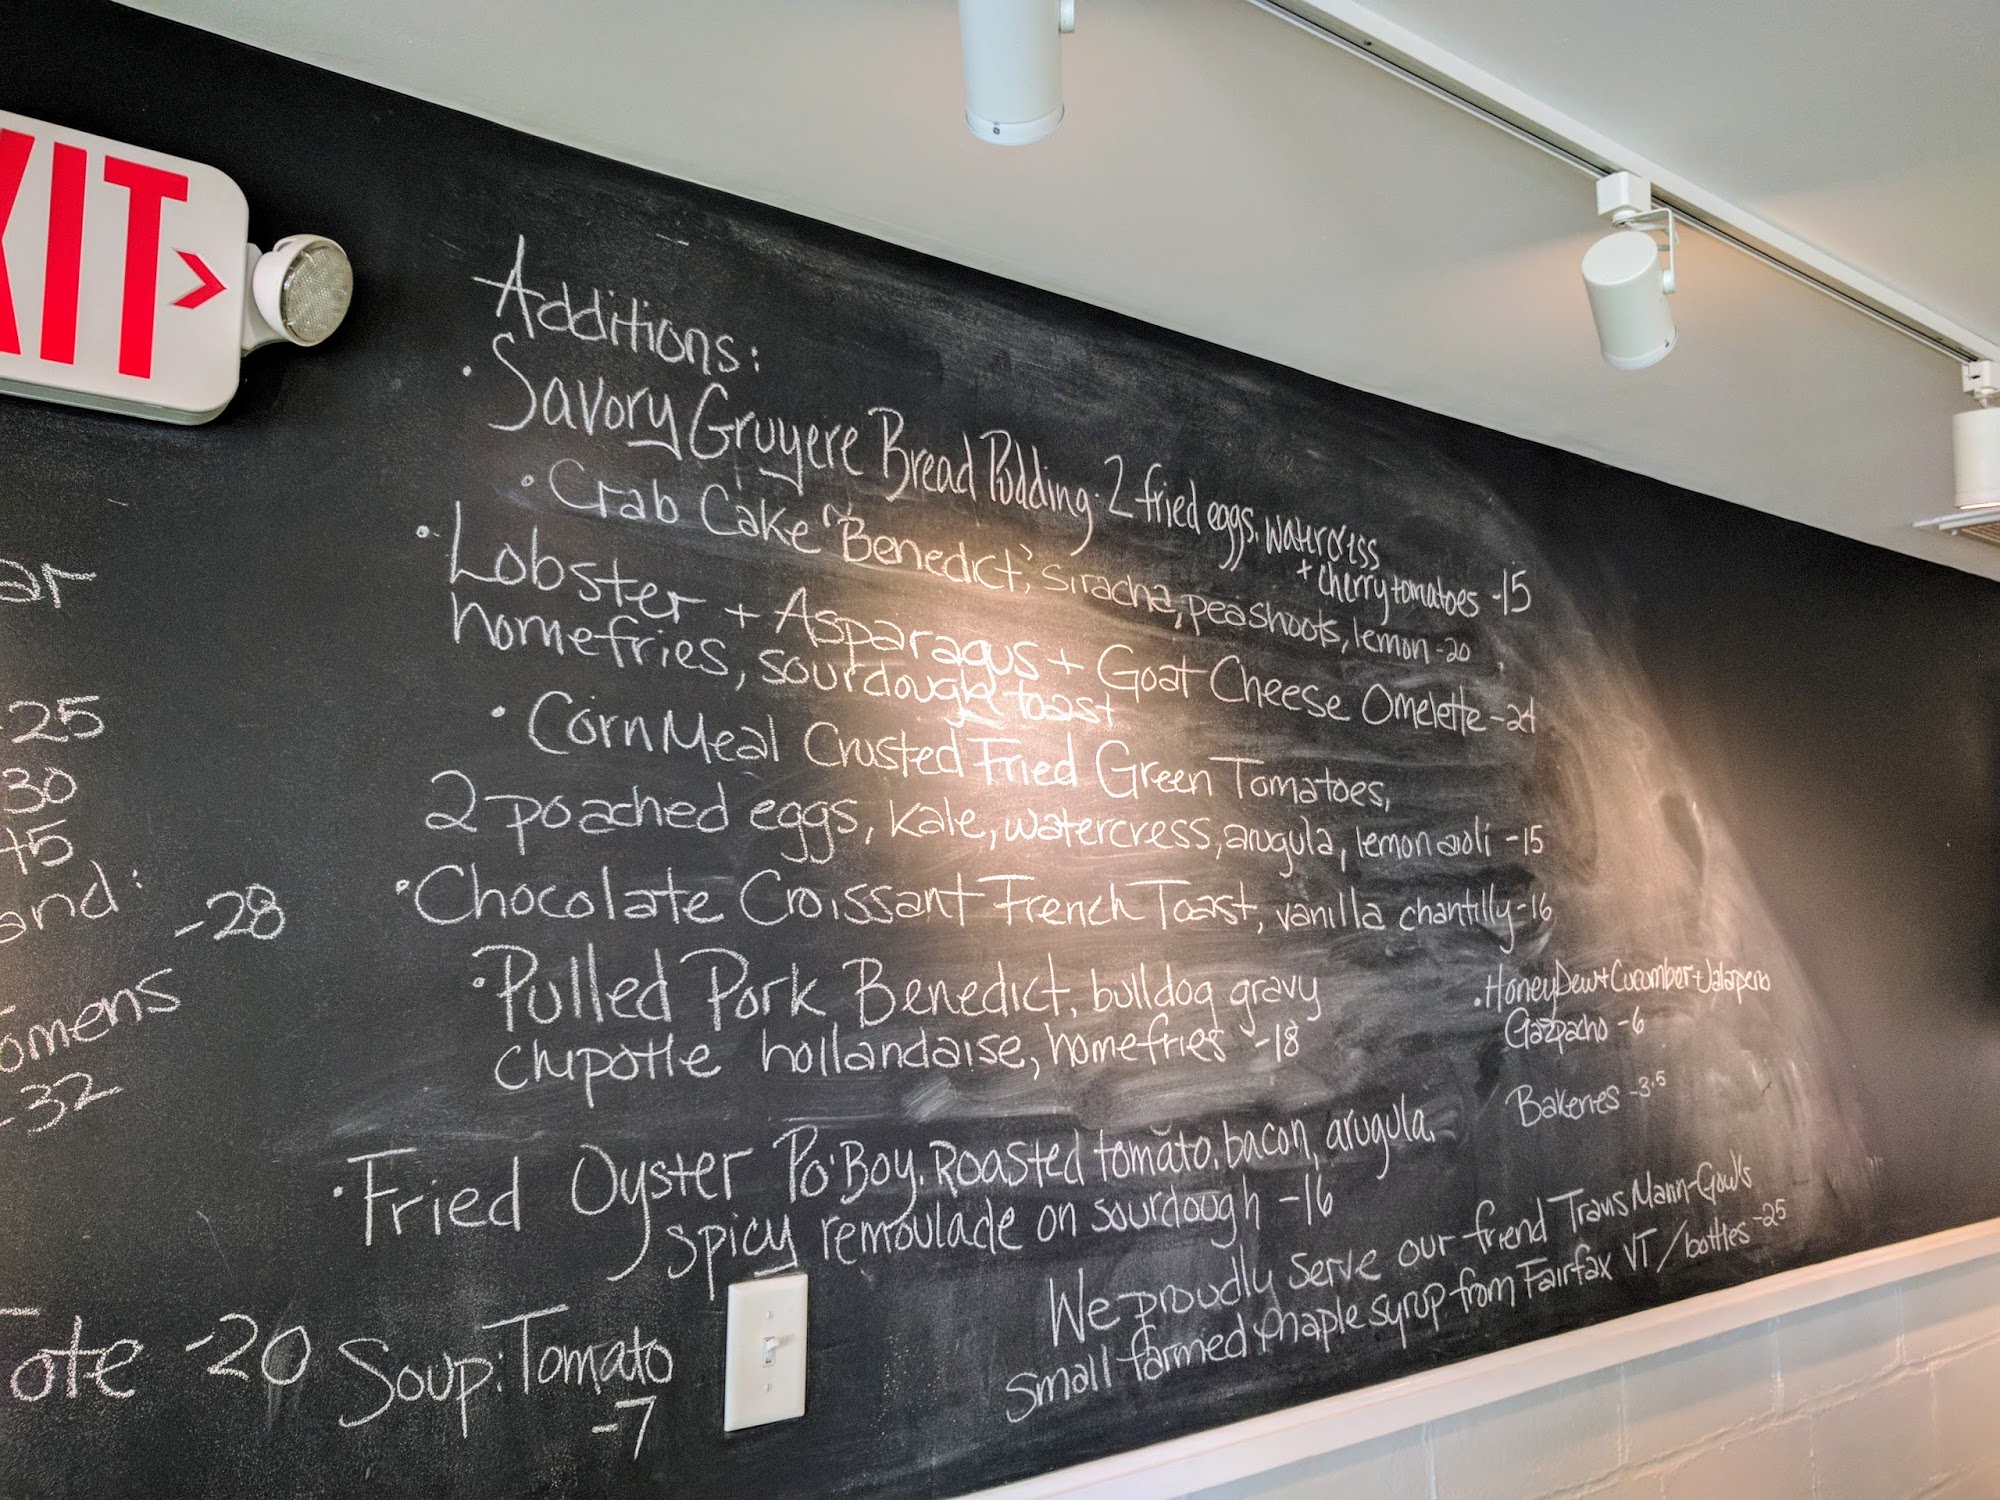 XIT
Additions:
· Savory Gruyere Bread Pudding · 2 fried eggs, watercress
+ cherry tomatoes -15
· Crab Cake "Benedict", siracha, peashoots, lemon -20
· Lobster + Asparagus + Goat Cheese Omelette -24
homefries, sourdough toast
· CornMeal Crusted Fried Green Tomatoes,
2 poached eggs, kale, watercress, arugula, lemon aioli -15
· Chocolate Croissant French Toast, vanilla chantilly -16
· Pulled Pork Benedict, bulldog gravy
chipotle hollandaise, homefries -18
· HoneyDew + Cucumber + Jalapeno
Gazpacho -6
Bakeries -3.5
· Fried Oyster Po'Boy. Roasted tomato, bacon, arugula,
spicy remoulade on sourdough -16
We proudly serve our friend Travis Mann-Gow's
small farmed maple syrup from Fairfax VT / bottles -25
Soup: Tomato
-7
ar
-25
30
45
and:
-28
omens
-32
ote -20